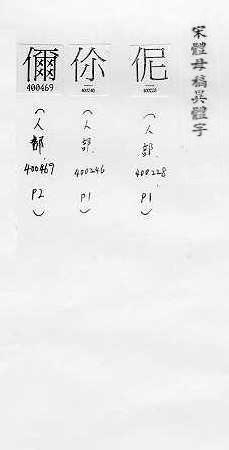 宋體母稿異體字
伲
400228
（人部.400228 P1）
伱
400246
（人部.400246 P1）
儞
400469
（人部.400469 P2）